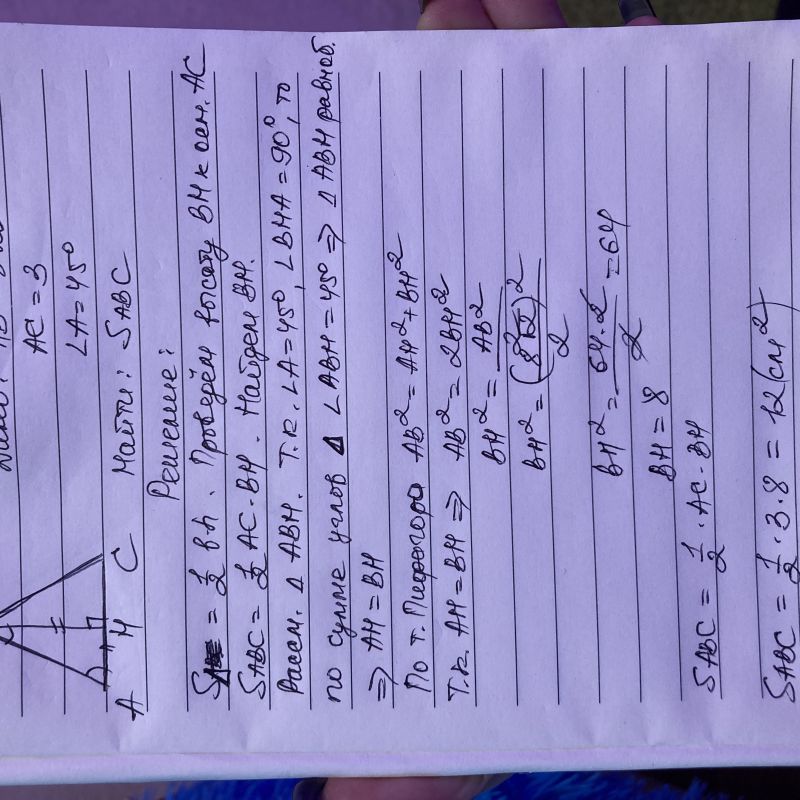 AC = 3
∠A = 45°
A H C Найти: SABC
Решение:
S = 1/2 ah. Проведём высоту BH к осн. AC
SABC = 1/2 AC·BH. Найдем BH.
Рассм. Δ ABH. Т.к. ∠A = 45°, ∠BHA = 90°, то
по сумме углов Δ ∠ABH = 45° => Δ ABH равноб.
=> AH = BH
По т. Пифагора AB² = AH² + BH²
Т.к. AH = BH => AB² = 2BH²
BH² = AB²/2
BH² = (8√2)²/2
BH² = 64·2/2 = 64
BH = 8
SABC = 1/2 · AC · BH
SABC = 1/2 · 3 · 8 = 12 (см²)